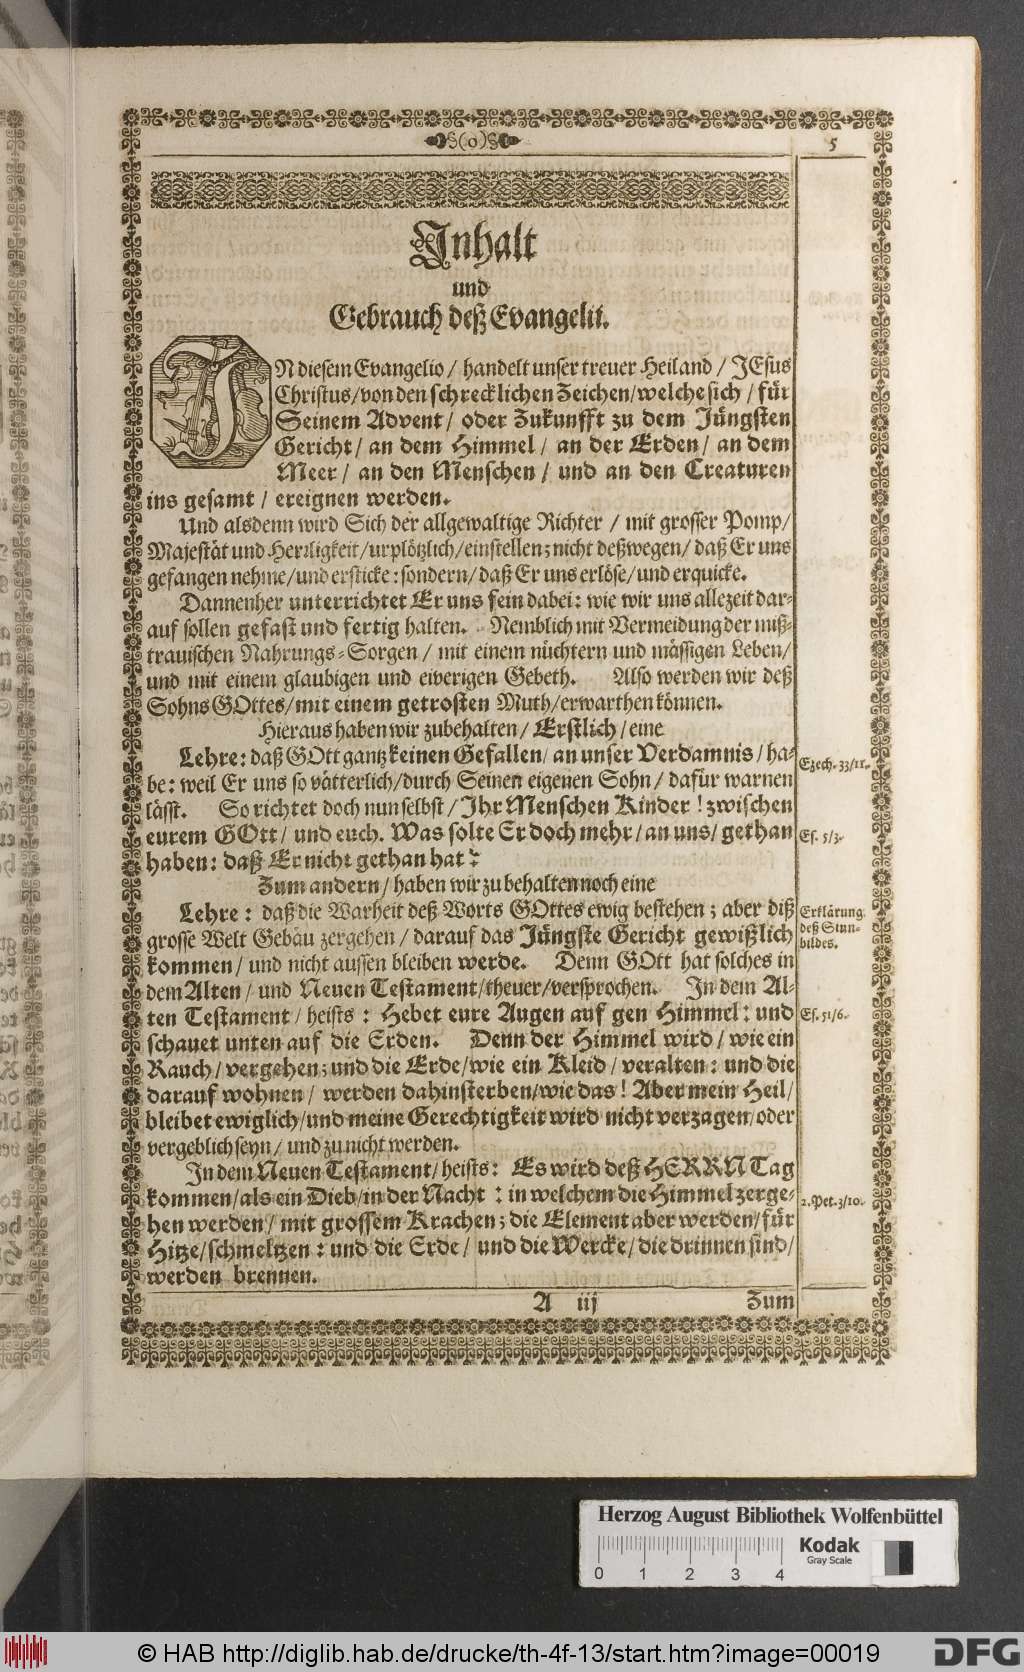 §(o)§
5
Inhalt
und
Gebrauch deß Evangelii.
IN diesem Evangelio / handelt unser treuer Heiland / JEsus
Christus / von den schrecklichen Zeichen / welche sich / für
Seinem Advent / oder Zukunfft zu dem Jüngsten
Gericht / an dem Himmel / an der Erden / an dem
Meer / an den Menschen / und an den Creaturen
ins gesamt / ereignen werden.
Und alsdenn wird Sich der allgewaltige Richter / mit grosser Pomp /
Majestät und Herrligkeit / urplötzlich / einstellen; nicht deßwegen / daß Er uns
gefangen nehme / und ersticke: sondern / daß Er uns erlöse / und erquicke.
Dannenher unterrichtet Er uns fein dabei: wie wir uns allezeit dar-
auf sollen gefast und fertig halten. Nemblich mit Vermeidung der miß-
trauischen Nahrungs-Sorgen / mit einem nüchtern und mässigen Leben /
und mit einem glaubigen und eiverigen Gebeth. Also werden wir deß
Sohns GOttes / mit einem getrosten Muth / erwarthen können.
Hieraus haben wir zubehalten / Erstlich / eine
Lehre: daß GOtt gantz keinen Gefallen / an unser Verdamnis / ha-
be: weil Er uns so vätterlich / durch Seinen eigenen Sohn / dafür warnen
lässt. So richtet doch nun selbst / Ihr Menschen Kinder! zwischen
eurem GOtt / und euch. Was solte Er doch mehr / an uns / gethan
haben: daß Er nicht gethan hat?
Zum andern / haben wir zu behalten noch eine
Lehre: daß die Warheit deß Worts GOttes ewig bestehen; aber diß
grosse Welt Gebäu zergehen / darauf das Jüngste Gericht gewißlich
kommen / und nicht aussen bleiben werde. Denn GOtt hat solches in
dem Alten / und Neuen Testament / theuer / versprochen. In dem Al-
ten Testament / heists: Hebet eure Augen auf gen Himmel: und
schauet unten auf die Erden. Denn der Himmel wird / wie ein
Rauch / vergehen; und die Erde / wie ein Kleid / veralten: und die
darauf wohnen / werden dahinsterben / wie das! Aber mein Heil /
bleibet ewiglich / und meine Gerechtigkeit wird nicht verzagen / oder
vergeblich seyn / und zu nicht werden.
In dem Neuen Testament / heists: Es wird deß HERRN Tag
kommen / als ein Dieb / in der Nacht: in welchem die Himmel zerge-
hen werden / mit grossem Krachen; die Element aber werden / für
Hitze / schmeltzen: und die Erde / und die Wercke / die drinnen sind /
werden brennen.
A iij
Zum
Ezech. 33/11.
Es. 5/3.
Erklärung
deß Sinn-
bildes.
Es. 51/6.
2. Pet. 3/10.
Herzog August Bibliothek Wolfenbüttel
0 1 2 3 4
Kodak
Gray Scale
© HAB http://diglib.hab.de/drucke/th-4f-13/start.htm?image=00019
DFG